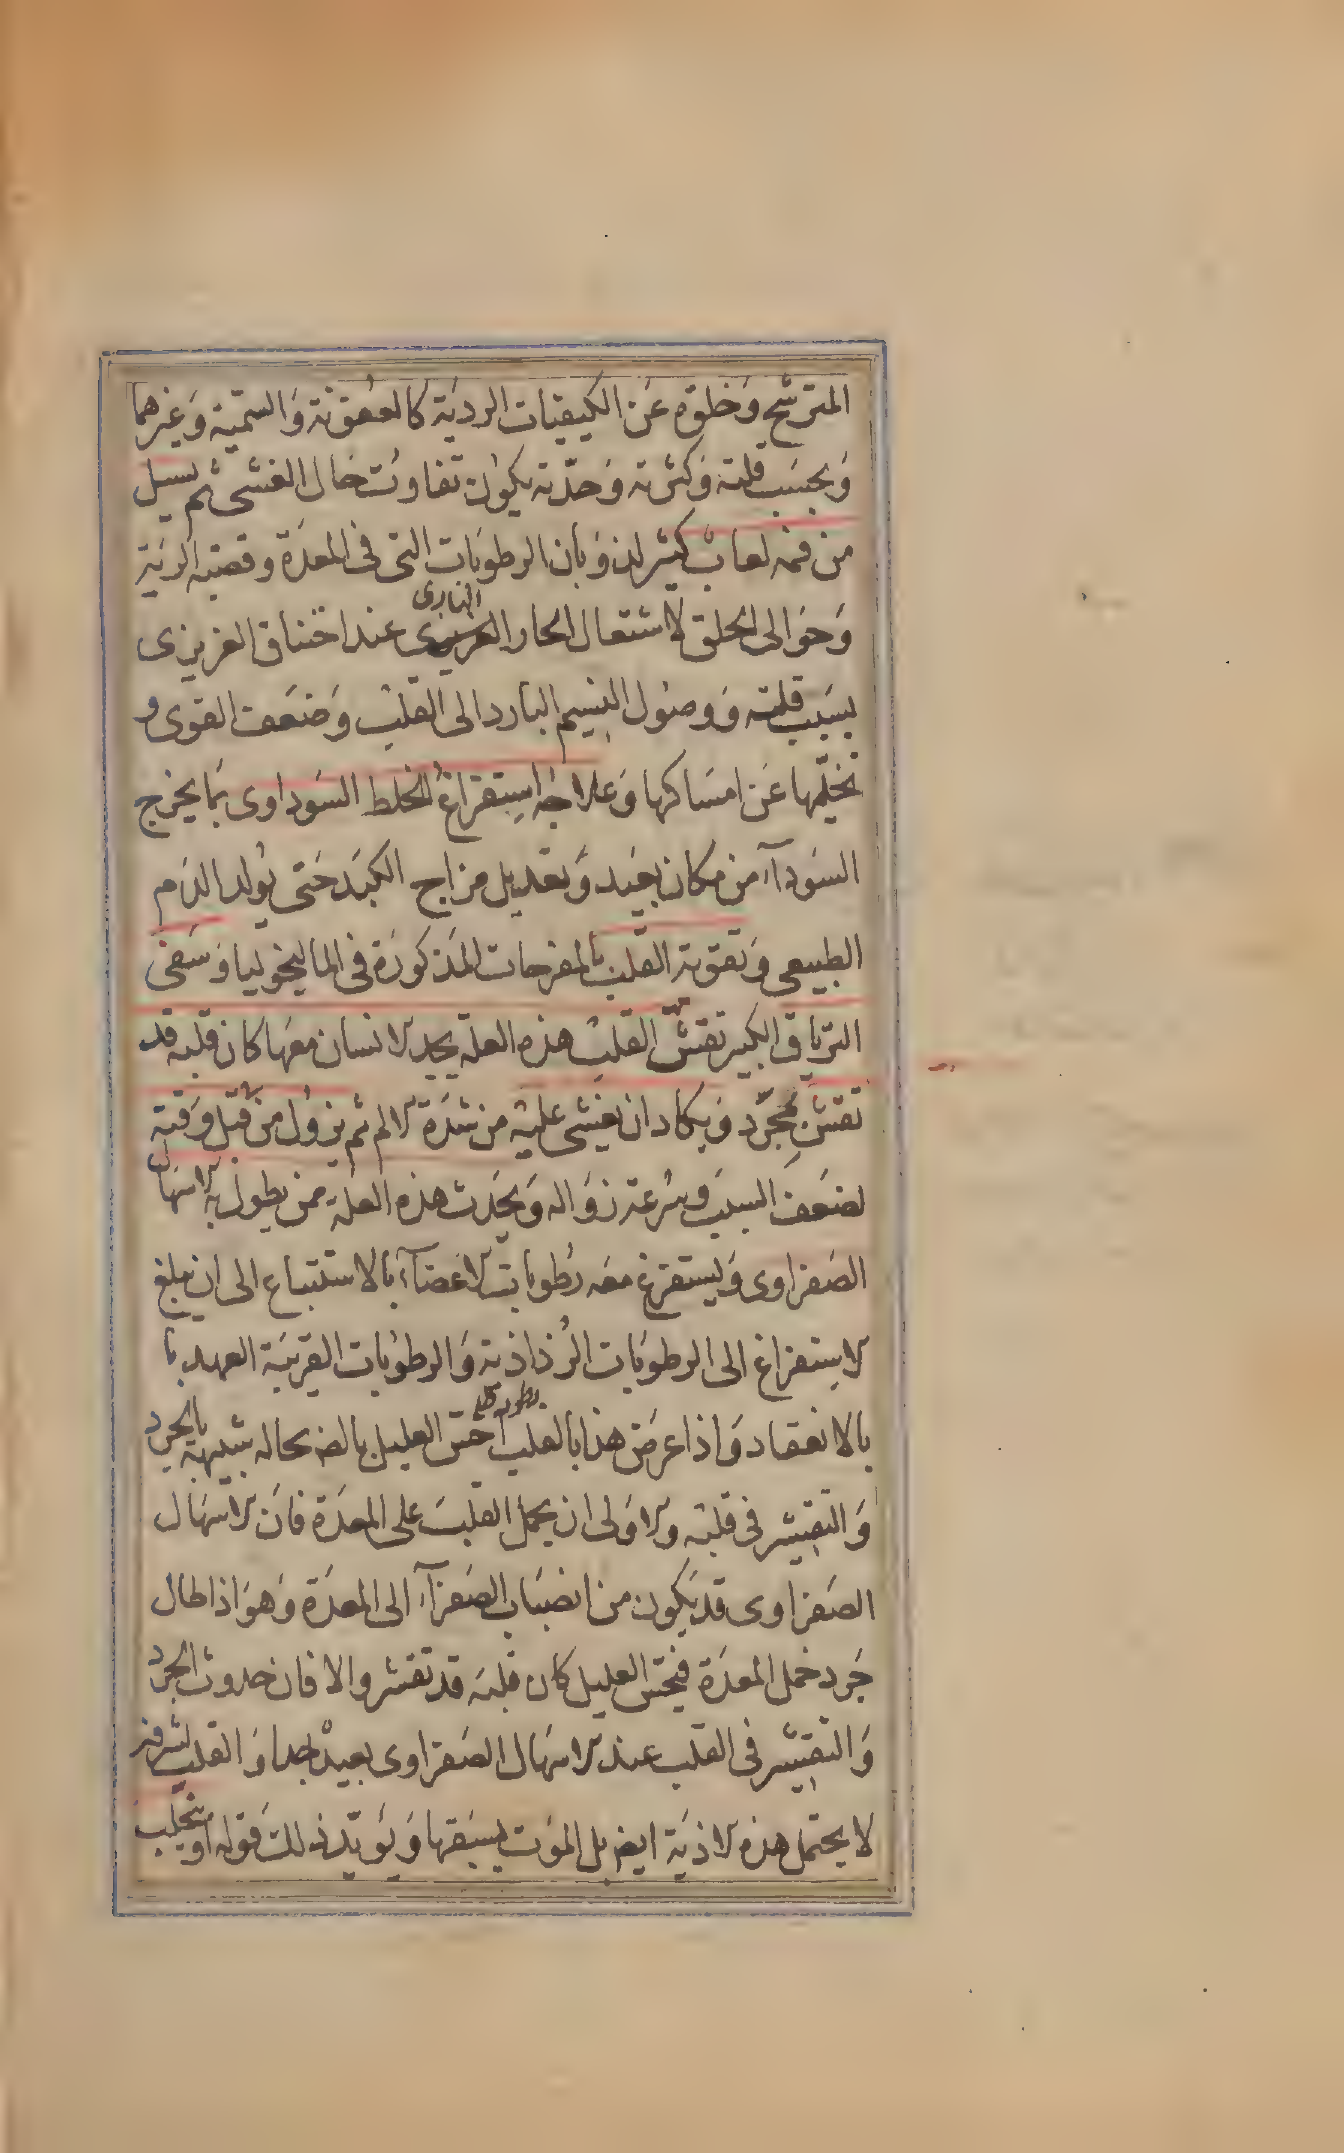 المترشح وخلوه عن الكيفيات الردية كالعفونة والسمية وغيرهما
وبحسب قلته وكثرته وحدته يكون تفاوت حال الغشى ثم يسيل
من فمه لعاب كثير لذوبان الرطوبات التى فى المعدة وقصبه الرية
وحوالى الحلق لاشتعال الحار النارى عند اختناق الغريزى
بسبب قلته ووصول النسيم البارد الى القلب وضعف القوى و
تخليها عن امساكها وعلاجه استفراغ الخلط السوداوى بما يخرج
السودآء من مكان بعيد وتعديل مزاج الكبد حتى يولد الدم
الطبيعى وتقوية القلب بالمفرحات المذكورة فى الماليخوليا وسقى
الترياق الكبير تقشر القلب هذه العلة يجد الانسان معها كان قلبه قد
تقشر مجرد ويكاد ان يغشى عليه من شدة الالم ثم يزول من قبل وقته
لضعف السبب وسرعة زواله ويحدث هذه العلة ممن يطول به الاسهال
الصفراوى ويستفرغ معه رطوبات الاعضآء بالاستتباع الى ان يبلغ
الاستفراغ الى الرطوبات الرذاذية والرطوبات القريبة العهد با
بالانعقاد واذا عرض هذا بالقلب احس العليل بالضه بحاله شبيهة بالجرد
والتقشر فى قلبه والاولى ان يحمل القلب على المعدة فان الاسهال
الصفراوى قد يكون من انصباب الصفرآء الى المعدة وهو اذا طال
جرد خمل المعدة فيحس العليل كان قلبه قد تقشر والا فان حدوث الجرد
والتقشر فى القلب عند الاسهال الصفراوى بعيد جدا والقلب لشرفه
لا يحتمل هذه الاذية ايضا بل الموت يسبقها ويؤيد ذلك قوله او يتحلب